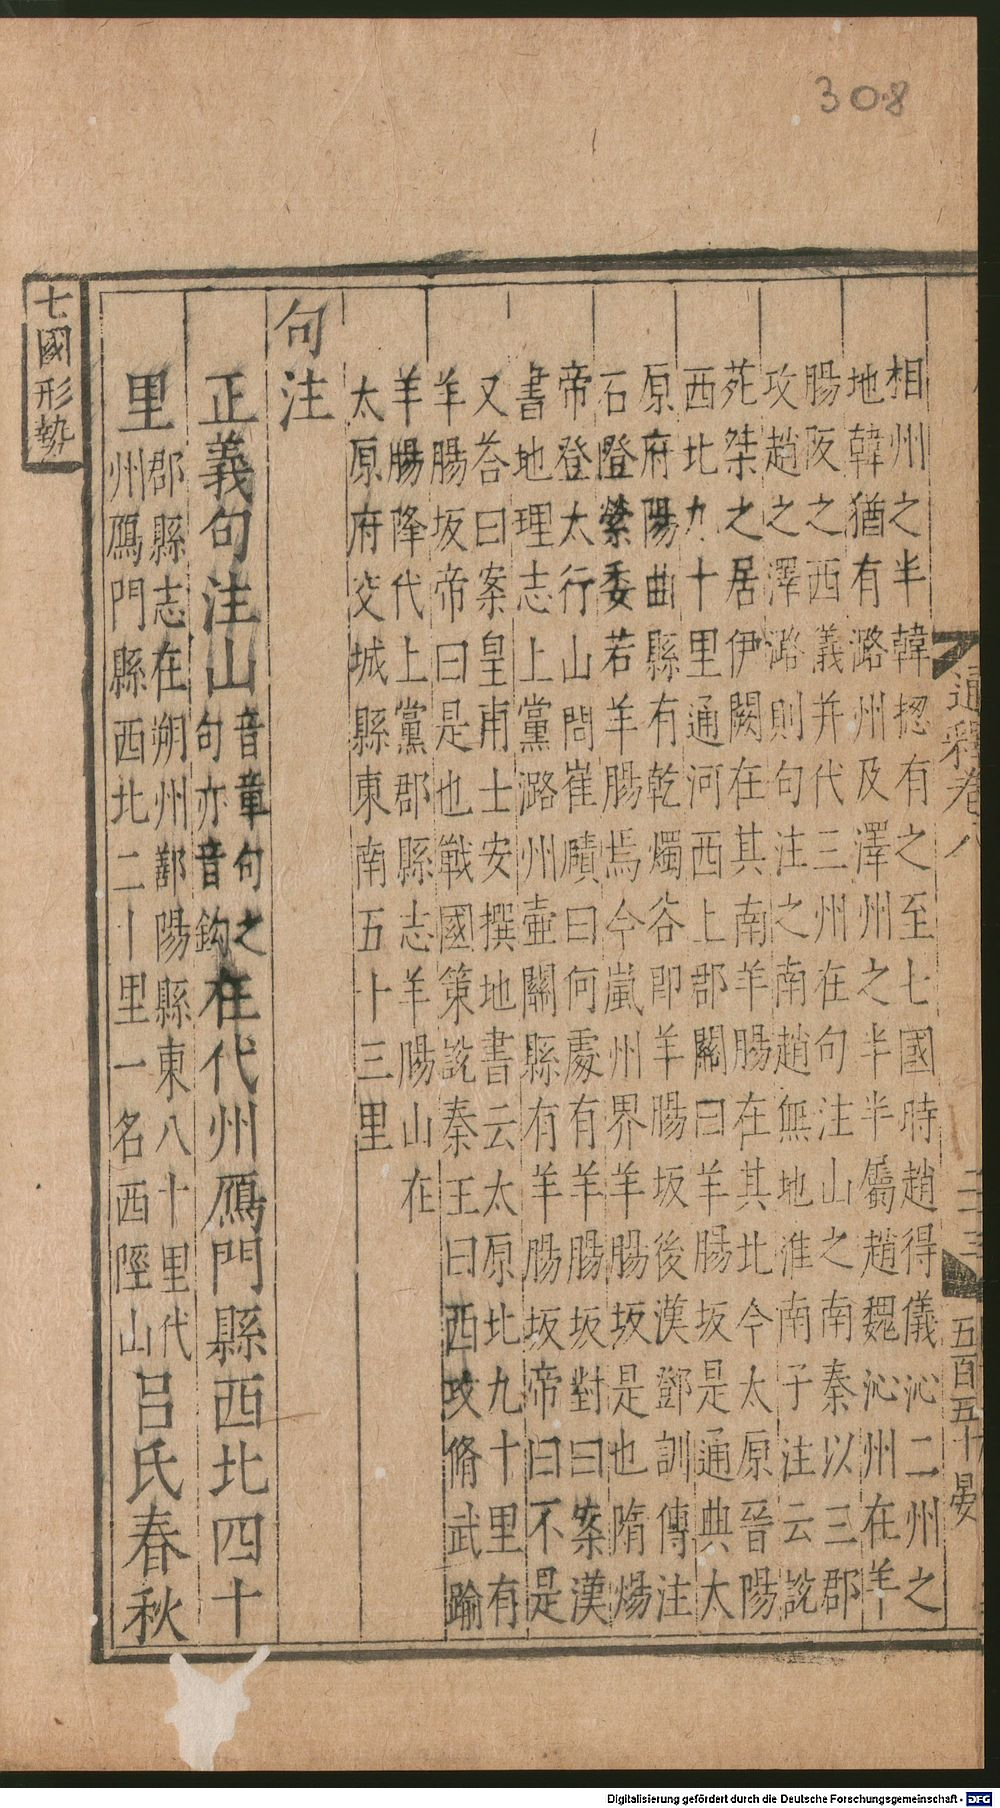 308
通釋卷八
二十三
五百五十晏
相州之半韓揔有之至七國時趙得儀沁二州之
地韓猶有潞州及澤州之半半屬趙魏沁州在羊
腸阪之西儀并代三州在句注山之南秦以三郡
攻趙之澤潞則句注之南趙無地淮南子注云說
苑桀之居伊闕在其南羊腸在其北今太原晉陽
西北九十里通河西上郡關曰羊腸坂是通典太
原府陽曲縣有乾燭谷即羊腸坂後漢鄧訓傳注
石隥縈委若羊腸焉今嵐州界羊腸坂是也隋煬
帝登太行山問崔賾曰何處有羊腸坂對曰案漢
書地理志上黨潞州壺關縣有羊腸坂帝曰不是
又荅曰案皇甫士安撰地書云太原北九十里有
羊腸坂帝曰是也戰國策說秦王曰西攻脩武踰
羊腸降代上黨郡縣志羊腸山在
太原府交城縣東南五十三里
句注
正義句注山音章句之句亦音鈎在代州鴈門縣西北四十
里郡縣志在朔州鄯陽縣東八十里代州鴈門縣西北二十里一名西陘山呂氏春秋
七國形勢
Digitalisierung gefördert durch die Deutsche Forschungsgemeinschaft - DFG